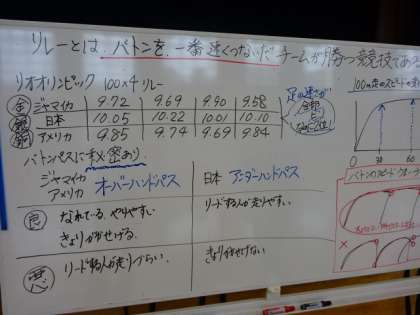 リレーとは バトンを 一番速くつないだ チームが勝つ競技である
リオオリンピック 100×4リレー
金 ジャマイカ 9.72 9.69 9.90 9.58
銀 日本 10.05 10.22 10.01 10.10
銅 アメリカ 9.85 9.74 9.69 9.84
足の速さが
100m走のスピードの
0 30 60
バトンパスに秘密あり
ジャマイカ
アメリカ オーバーハンドパス
日本 アンダーハンドパス
バトンのスピード
良 なれている。やりやすい
きょりがかせげる。
リードする人が走りやすい。
悪 リードする人が走りづらい。
きょりがかせげない